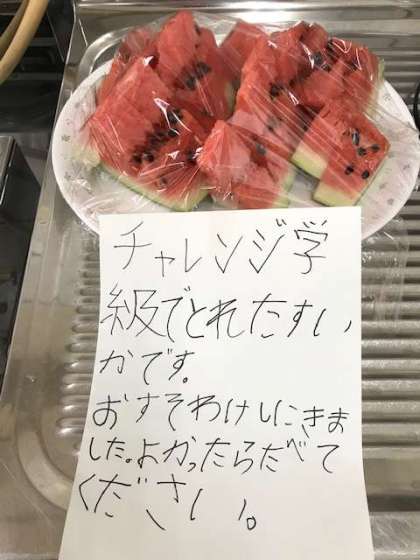 チャレンジ学
級でとれたすい
かです。
おすそわけしにきま
した。よかったらたべて
ください。